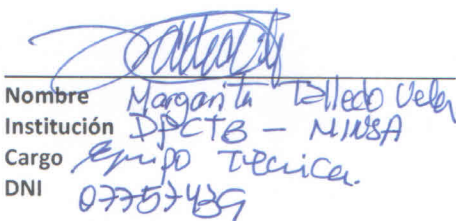 Nombre Margarita Talledo Vela
Institución DPCTB - MINSA
Cargo Equipo Técnica.
DNI 07757439